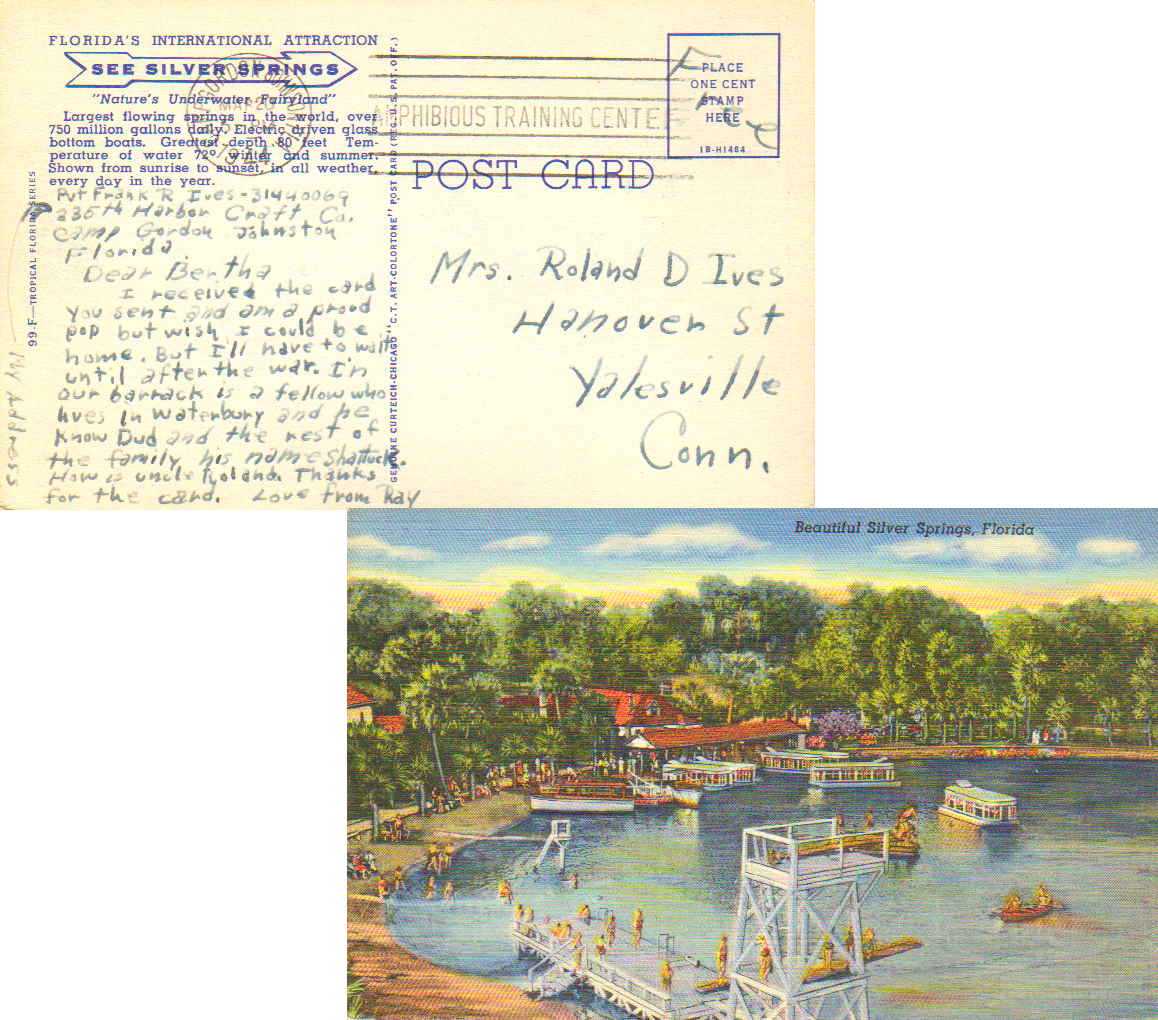 FLORIDA'S INTERNATIONAL ATTRACTION
SEE SILVER SPRINGS
"Nature's Underwater Fairyland"
Largest flowing springs in the world, over
750 million gallons daily. Electric driven glass
bottom boats. Greatest depth 80 feet Tem-
perature of water 72° winter and summer.
Shown from sunrise to sunset, in all weather,
every day in the year.
AMPHIBIOUS TRAINING CENTER
PLACE
ONE CENT
STAMP
HERE
1B-H1464
Free
POST CARD
99-F—TROPICAL FLORIDA SERIES
GENUINE CURTEICH-CHICAGO "C.T. ART-COLORTONE" POST CARD (REG. U.S. PAT. OFF.)
My Address
Pvt Frank R Ives-31440069
335th Harbor Craft Co.
Camp Gordon Johnston
Florida.
Dear Bertha
I received the card
you sent and am a proud
pop but wish I could be
home. But I'll have to wait
until after the war. In
our barrack is a fellow who
lives in Waterbury and he
know Dud and the rest of
the family his name Shattuck.
How is uncle Roland. Thanks
for the card. Love from Ray
Mrs. Roland D Ives
Hanover St
Yalesville
Conn.
Beautiful Silver Springs, Florida